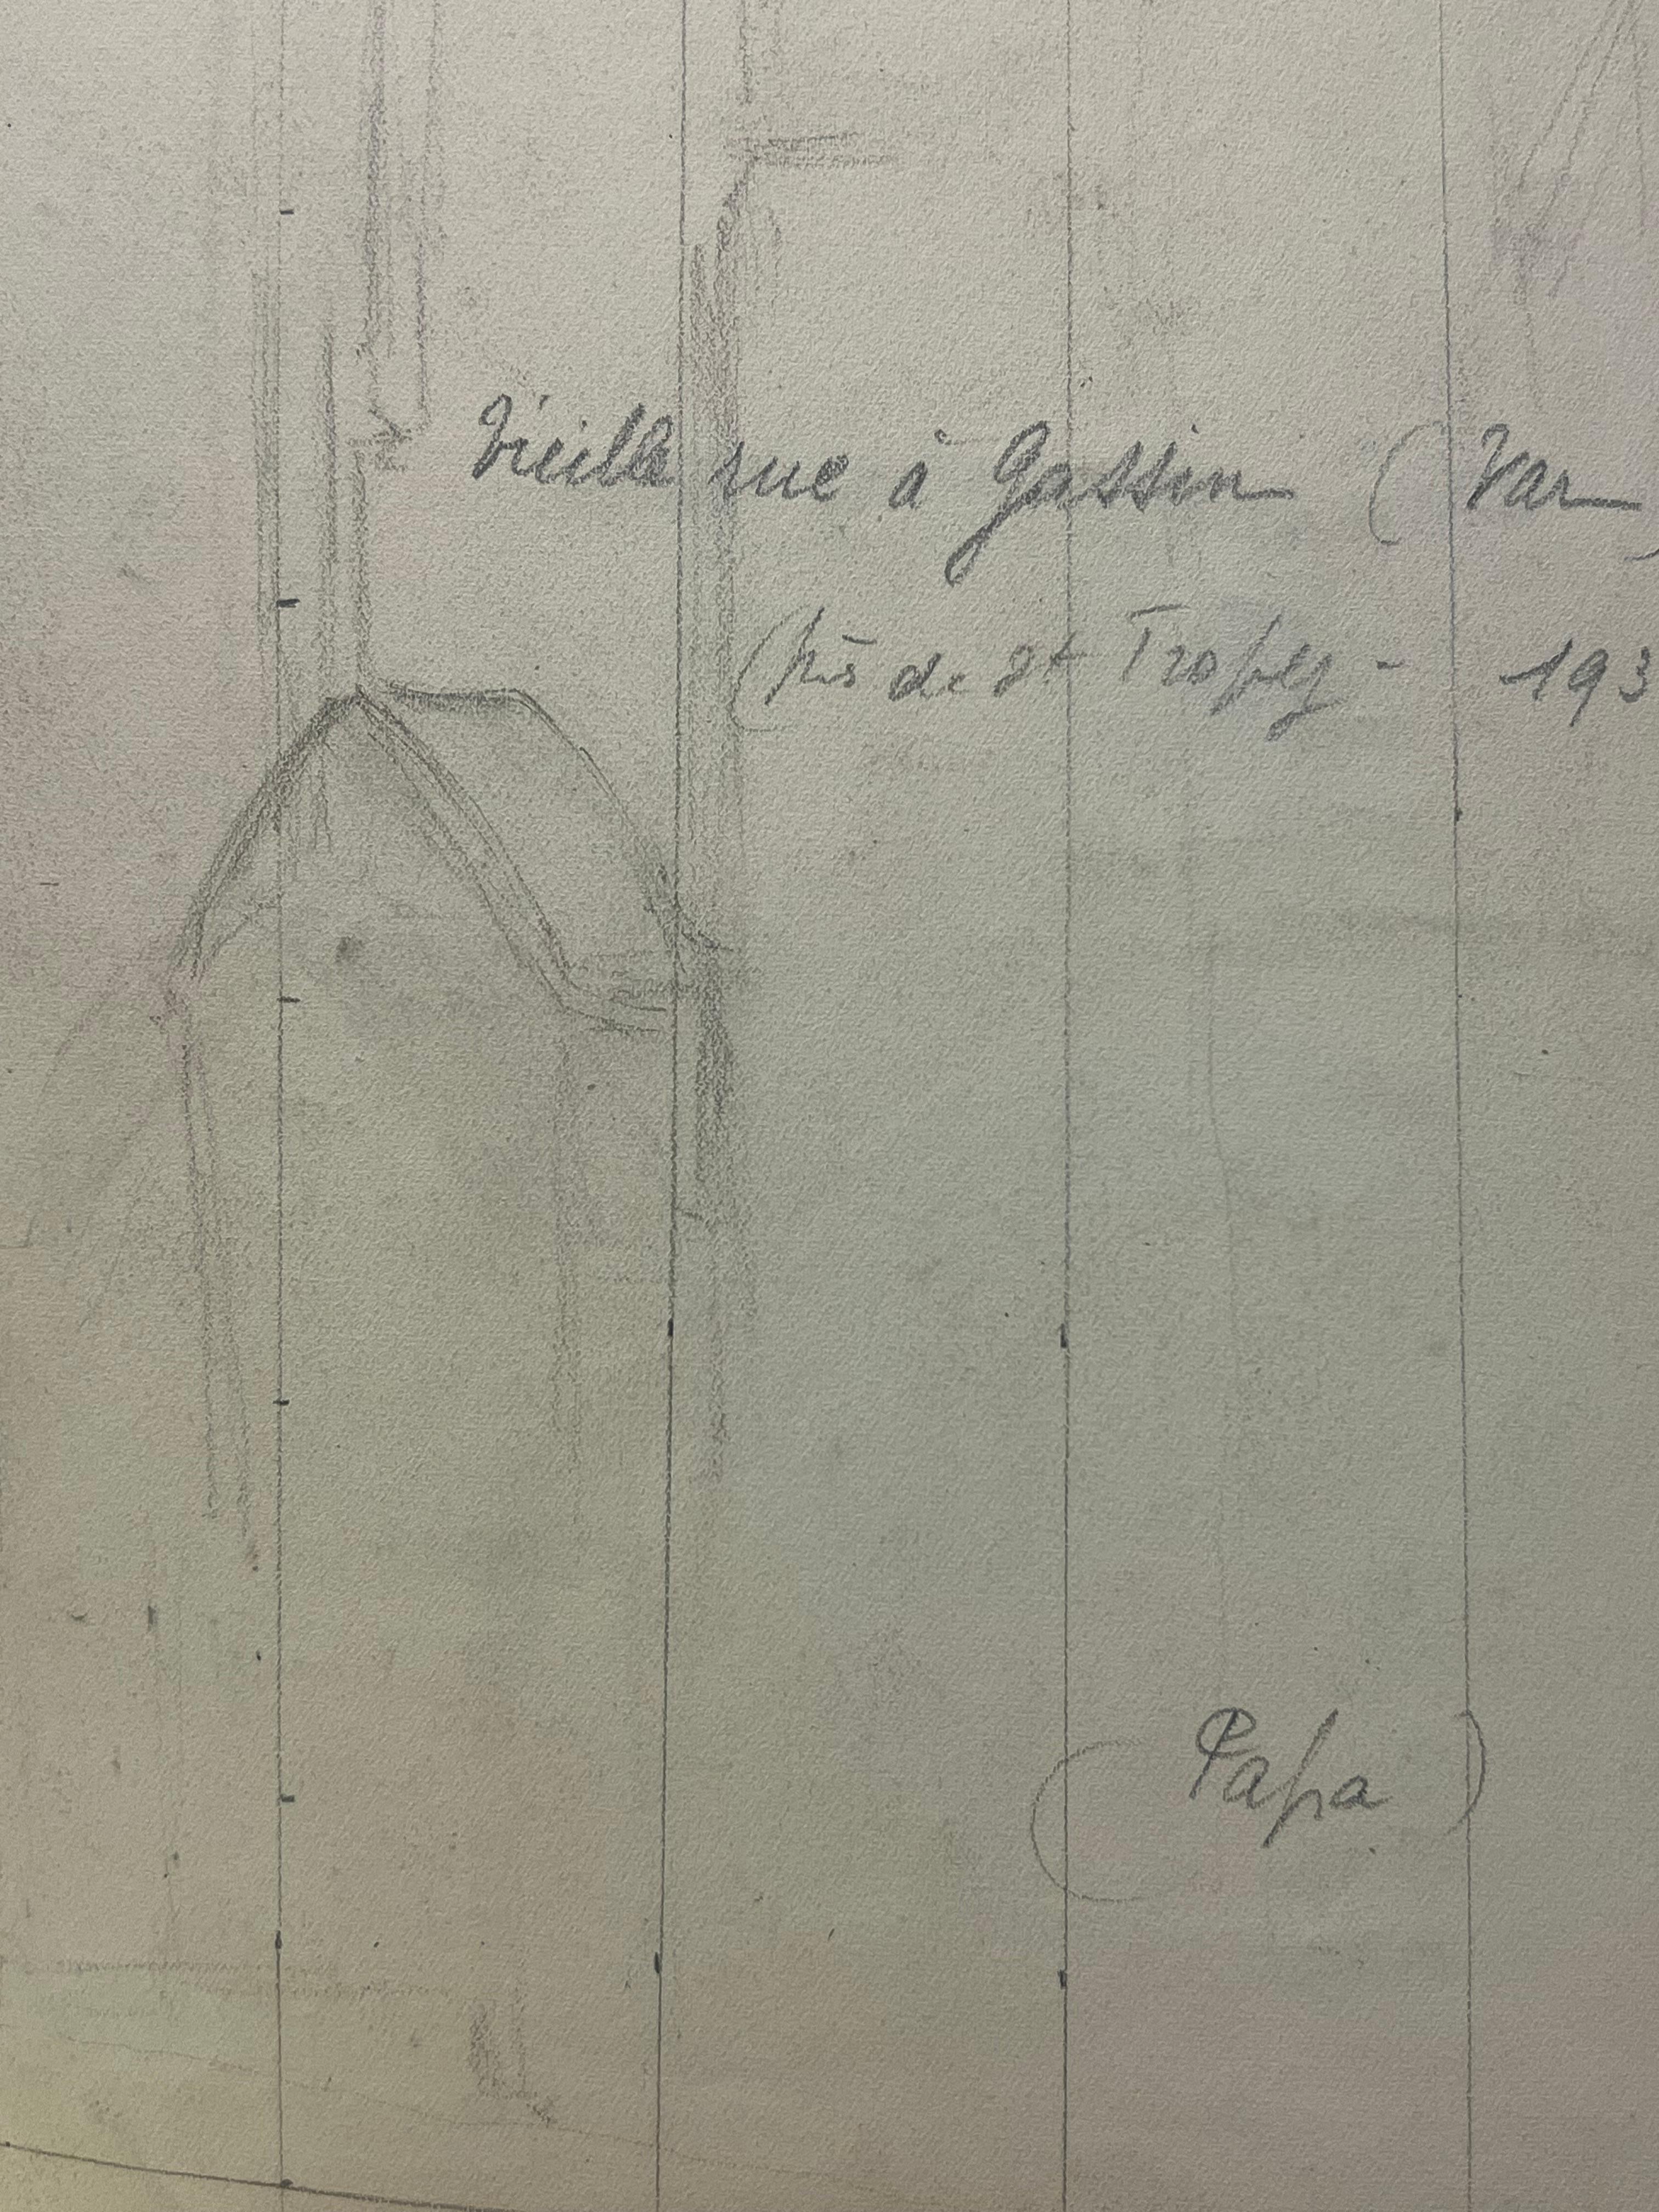 Vieille rue à Gassin (Var)
(près de St Tropez - 193
(Papa)